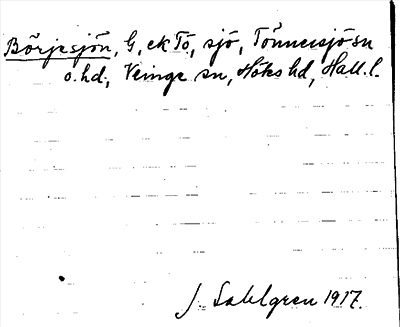 Börjesjön, G, ek Tö, sjö, Tönnersjö sn
o. hd, Veinge sn, Höks hd, Hall. l.
J. Sahlgren 1917.